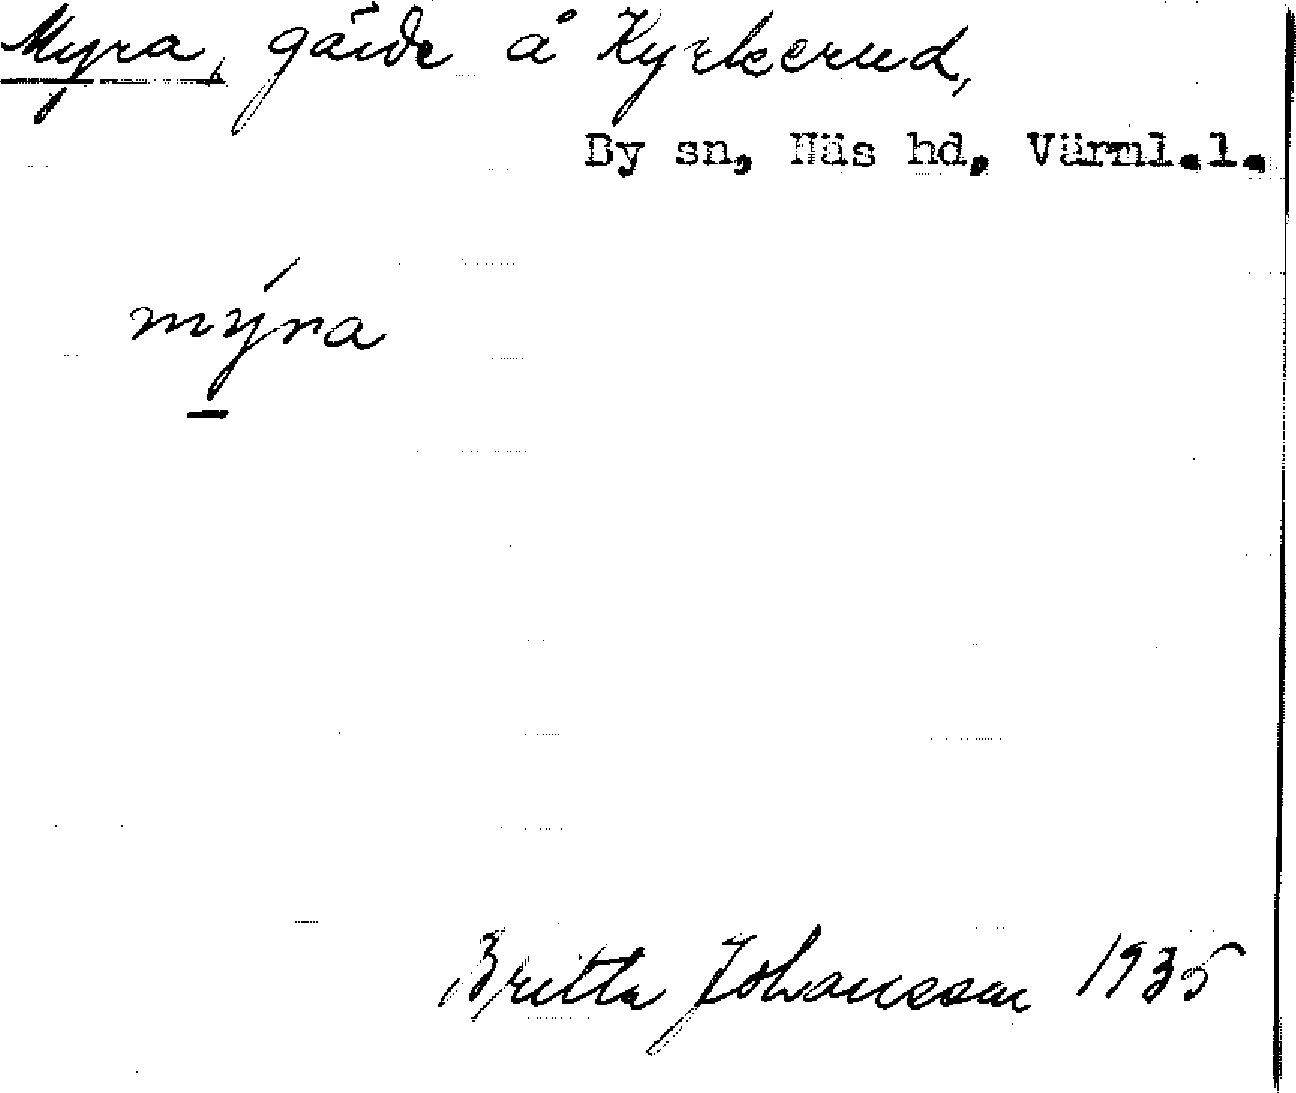 Myra, gärde å Kyrkerud,
By sn, Näs hd, Värml.l.
mýra
Britta Johansson 1935